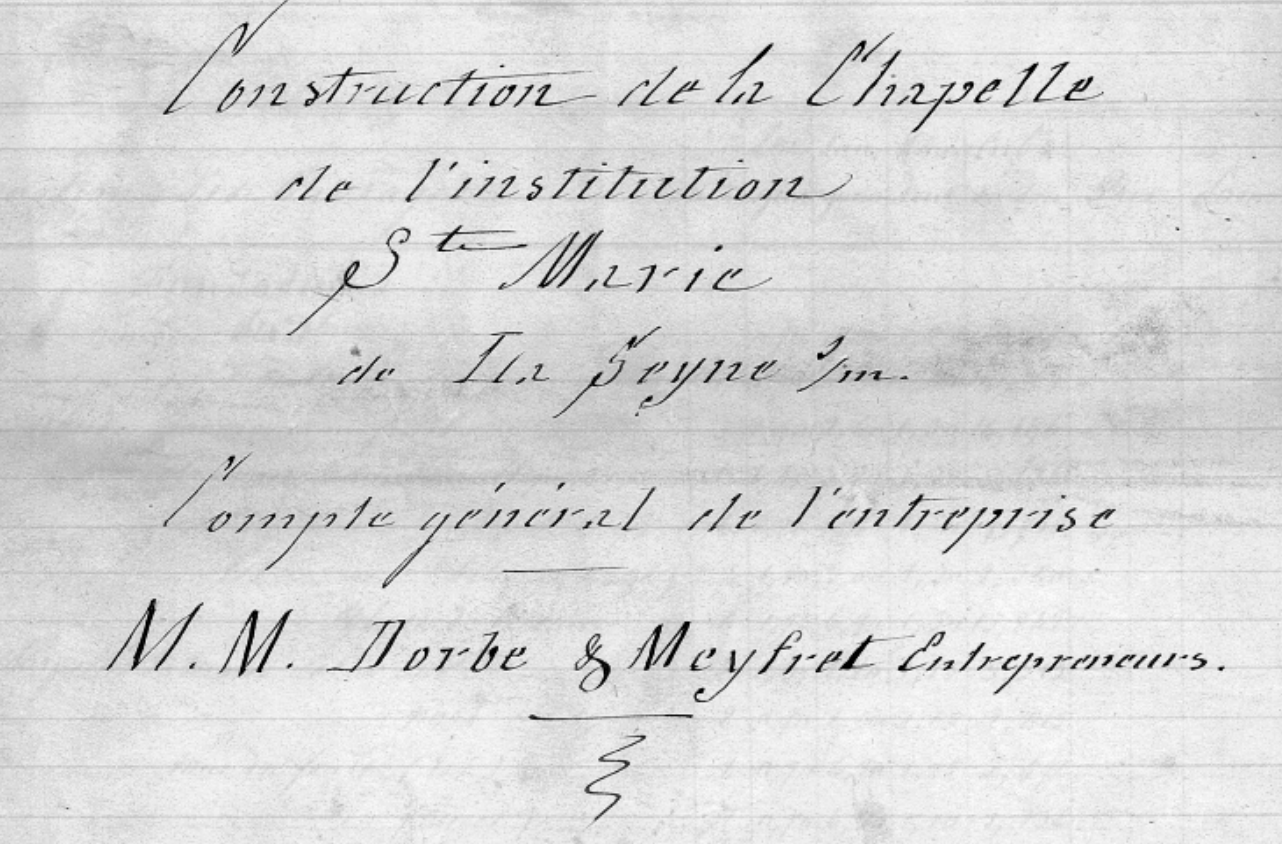 Construction de la Chapelle
de l'institution
Ste Marie
de La Seyne s/m.
Compte général de l'entreprise
M. M. Dorbe & Meyfret Entrepreneurs.